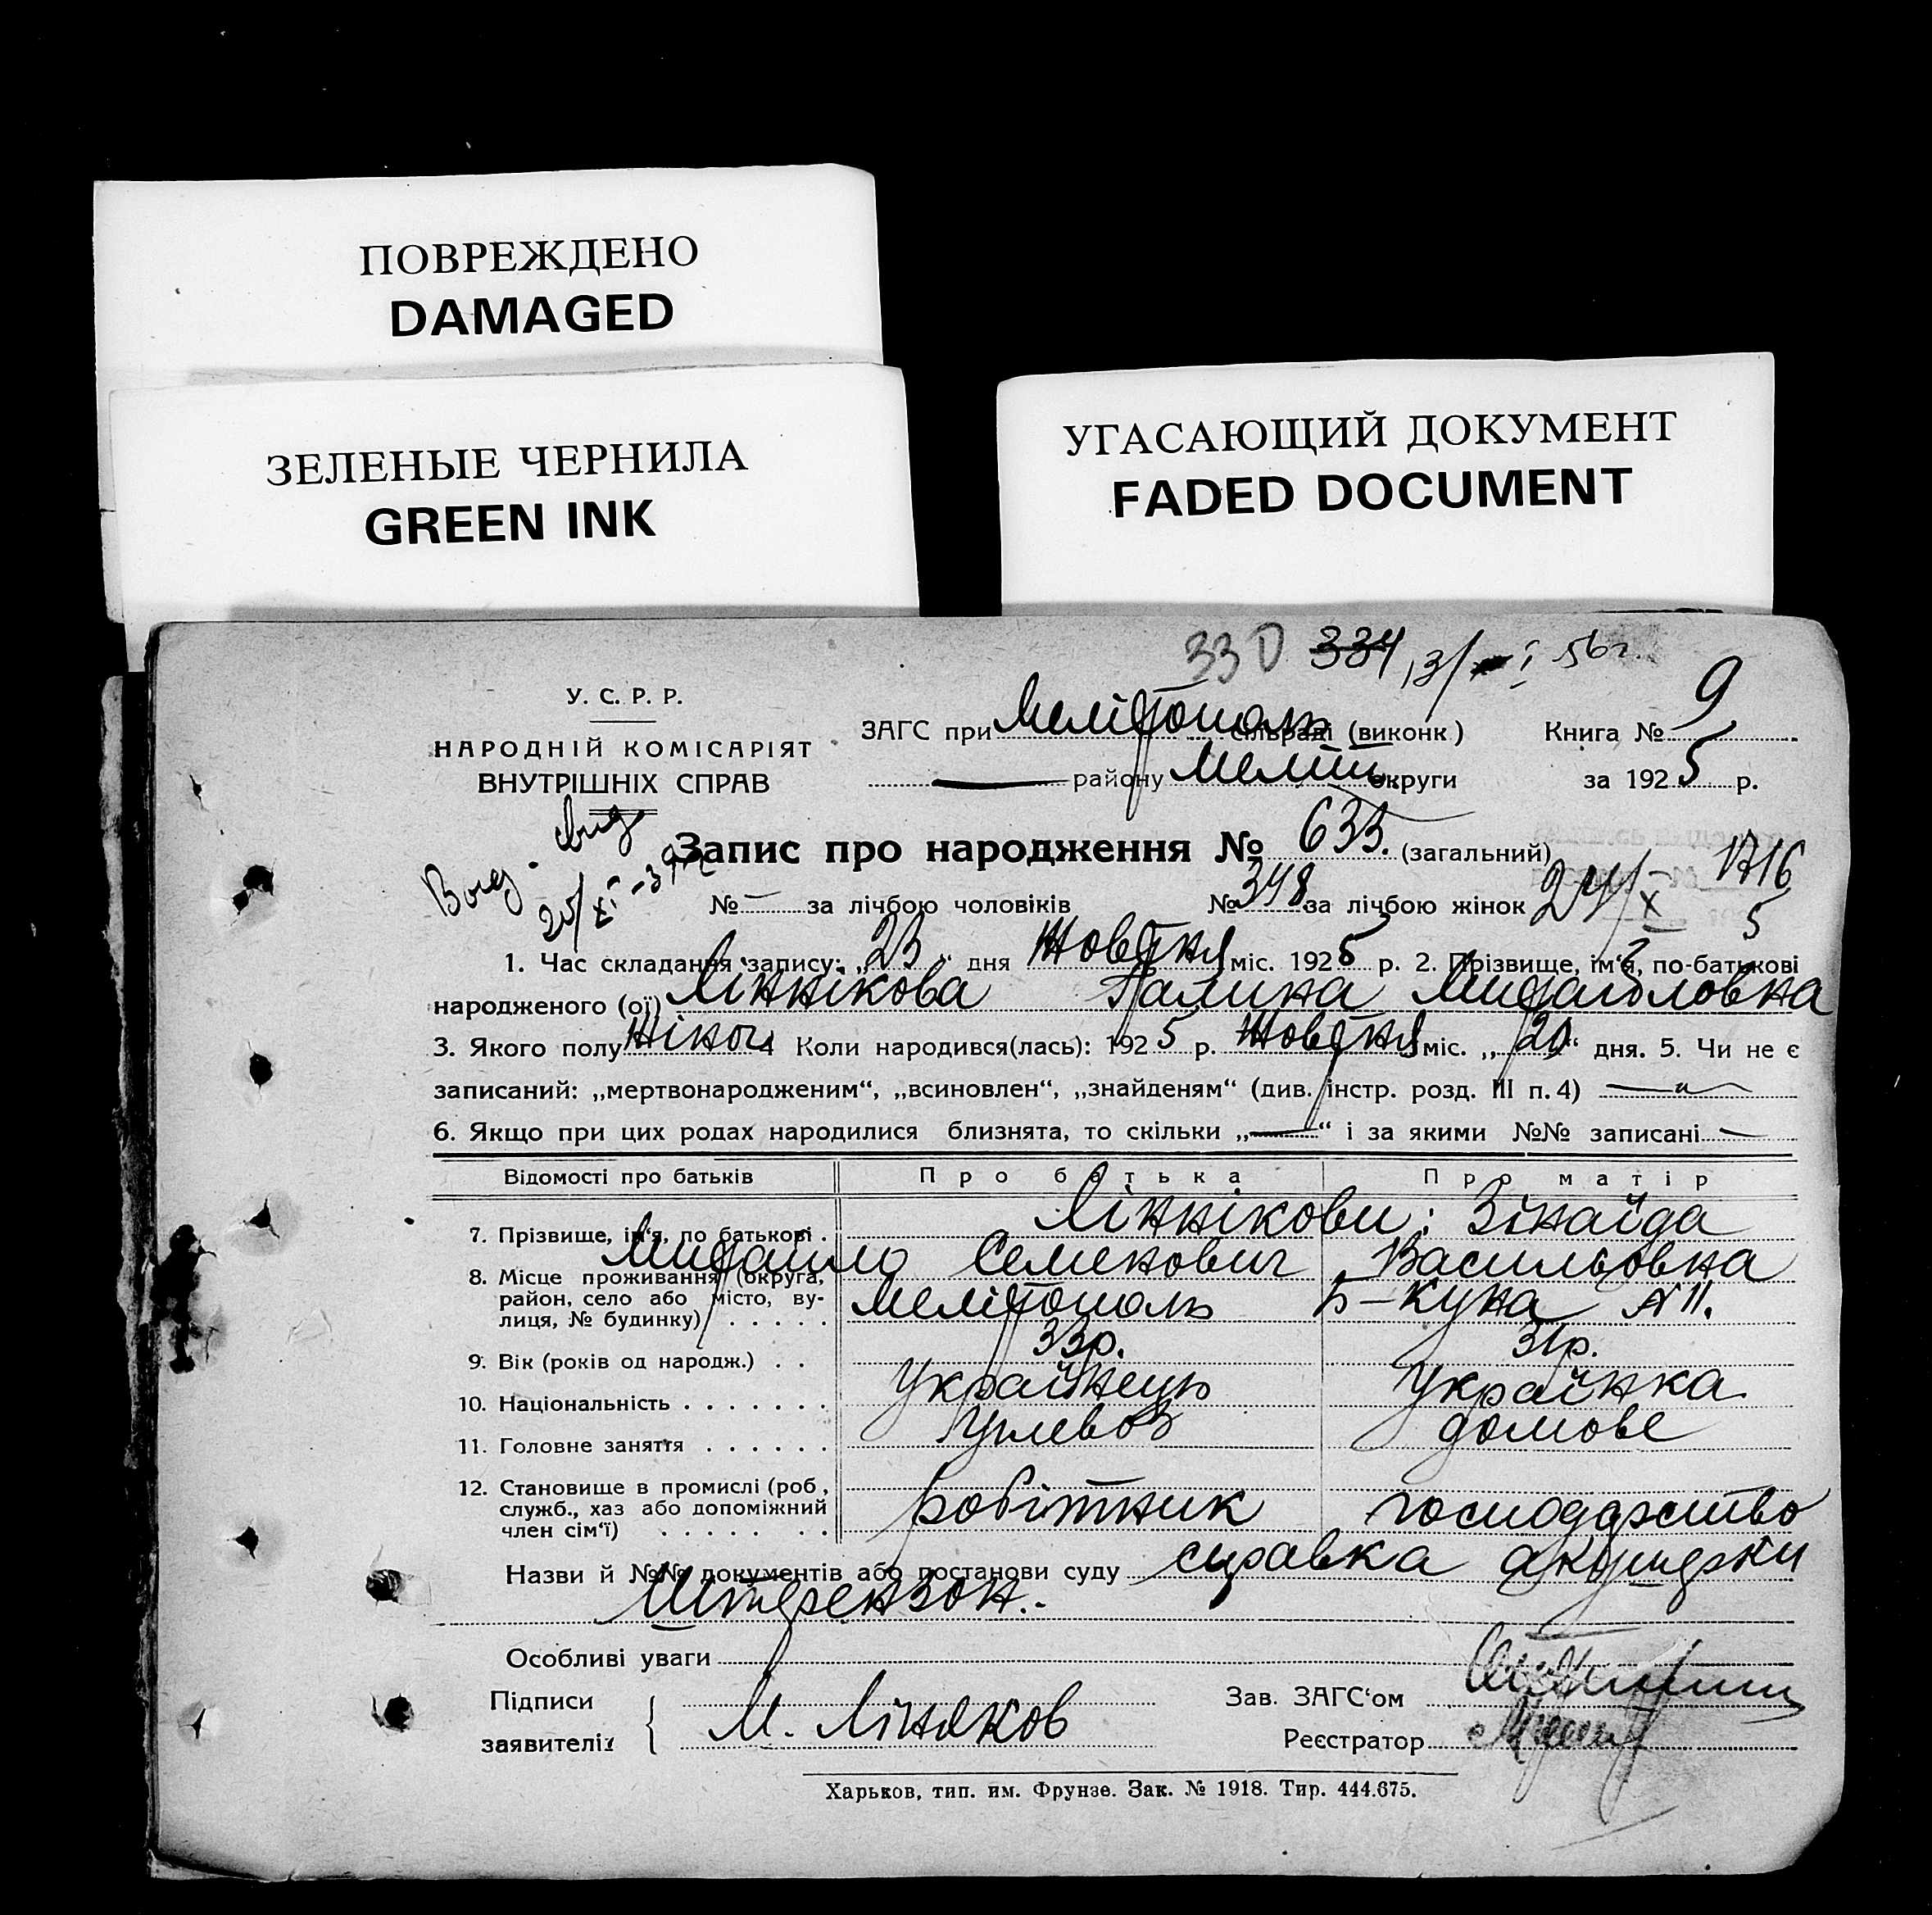 ПОВРЕЖДЕНО
DAMAGED
ЗЕЛЕНЫЕ ЧЕРНИЛА
GREEN INK
УГАСАЮЩИЙ ДОКУМЕНТ
FADED DOCUMENT
330 334 13/ I 56 г.
У. С. Р. Р.
НАРОДНІЙ КОМІСАРІЯТ
ВНУТРІШНІХ СПРАВ
ЗАГС при Мелітополь сільраді (виконк) Книга № 9
— району Меліт. округи за 1925 р.
Выд. свид
25/XI-39 г
Запис про народження № 635. (загальний)
№ — за лічбою чоловіків № 348 за лічбою жінок 24/X 1716
5
1. Час складання запису: „23“ дня Жовтня міс. 1925 р. 2. Прізвище, ім‘я, по-батькові
народженого (ої) Ліннікова Галина Михайловна
3. Якого полу жіноч. 4 Коли народився(лась): 1925 р. Жовтня міс. „20“ дня. 5. Чи не є
записаний: „мертвонародженим“, „всиновлен“, „знайденям“ (див. інстр. розд. III п. 4) —
6. Якщо при цих родах народилися близнята, то скільки „—“ і за якими №№ записані —
Відомості про батьків Про батька Про матір
7. Прізвище, ім‘я, по батькові . Ліннікови: Зінаїда
Михайло Семенович Васильовна
8. Місце проживання (округа, район, село або місто, вулиця, № будинку) . . . . . Мелітополь Б-Куна № 11.
9. Вік (років од народж.) . . 33р. 31р.
10. Національність . . . . . . . Українець Українка
11. Головне заняття . . . . . . Углевоз домове
12. Становище в промислі (роб, служб., хаз або допоміжний член сім‘ї) . . . . . . . . Робітник господарство
Назви й №№ документів або постанови суду справка акушерки
Штерензон.
Особливі уваги
Підписи заявителів { М. Лінніков
Зав. ЗАГС‘ом
Реєстратор
Харьков, тип. им. Фрунзе. Зак. № 1918. Тир. 444.675.